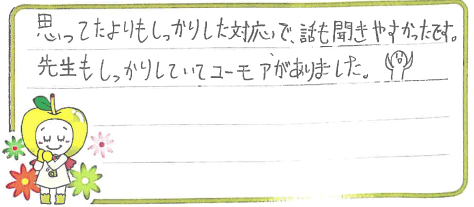 思ってたよりもしっかりした対応で、話も聞きやすかったです。
先生もしっかりしていてユーモアがありました。